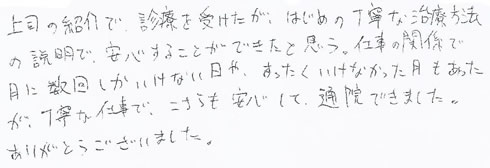 上司の紹介で、診療を受けたが、はじめの丁寧な治療方法
の説明で、安心することができたと思う。仕事の関係で
月に数回しかいけない日や、まったくいけなかった月もあった
が、丁寧な仕事で、こちらも安心して、通院できました。
ありがとうございました。